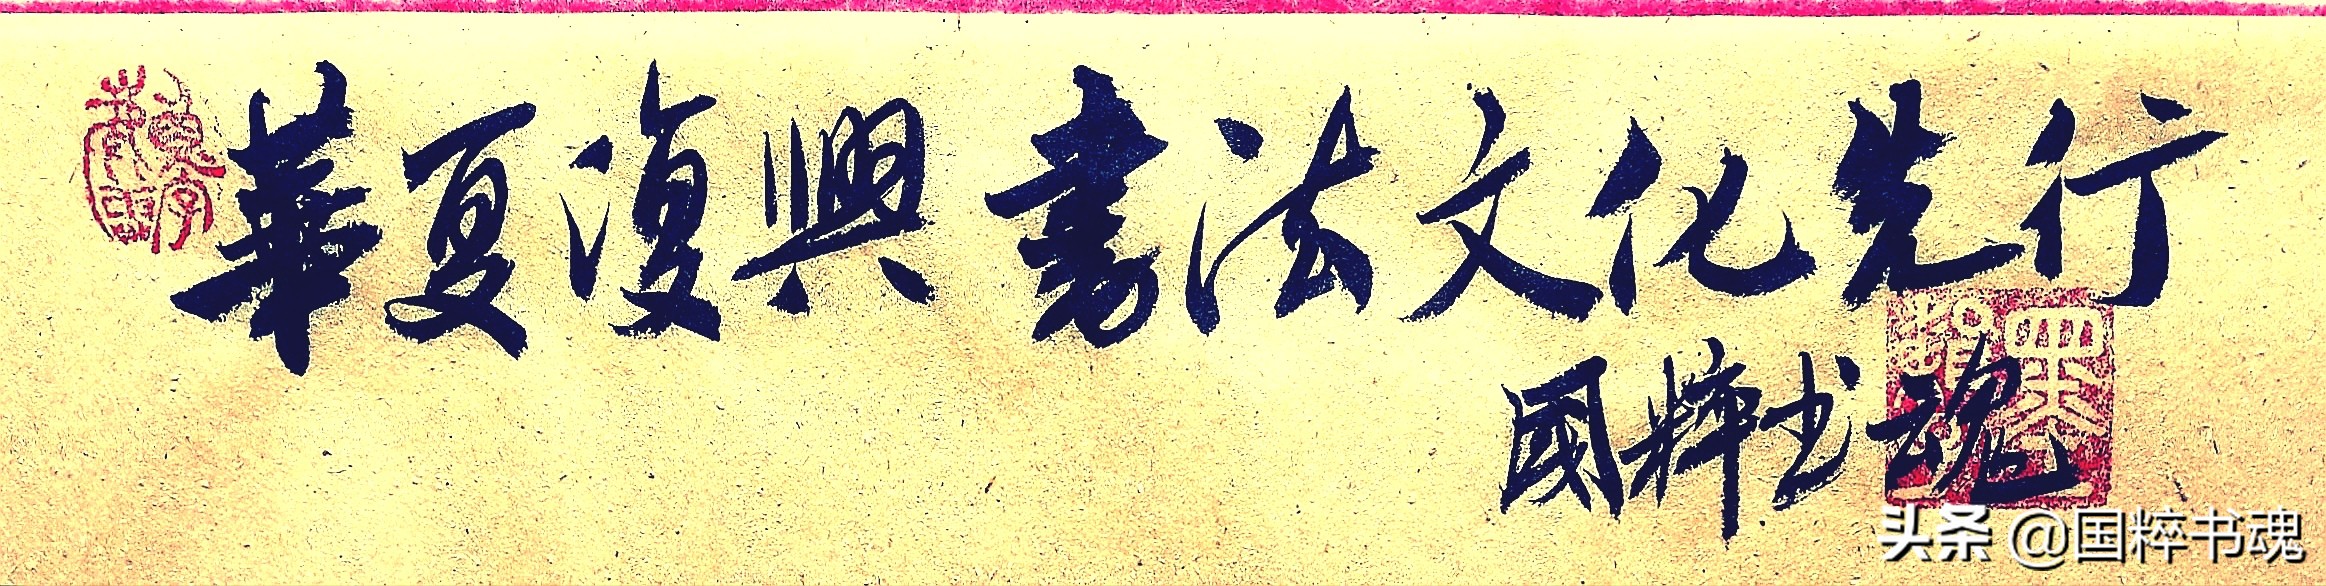 華夏復興 書法文化先行
國粹书魂
头条 @国粹书魂